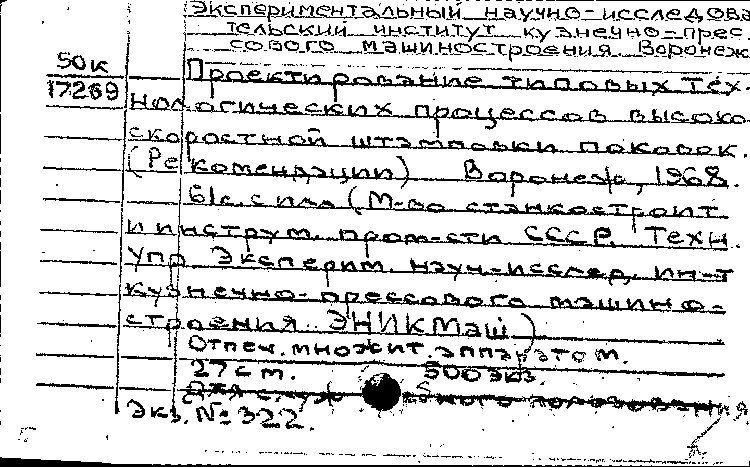 Экспериментальный научно-исследова-
тельский институт кузнечно-прес.
сового машиностроения. Воронеж
50к
17269
Проектирование типовых тех-
нологических процессов высоко-
скоростной штамповки поковок.
(Рекомендации) Воронеж, 1968.
61с. с илл (М-во станкостроит.
и инструм. пром-сти СССР. Техн.
Упр. Эксперим. науч-исслед. ин-т
кузнечно-прессового машино-
строения ЭНИКМаш)
Отпеч. множит. аппаратом.
27см. 500экз.
Для служебного пользования
Экз. № 322.